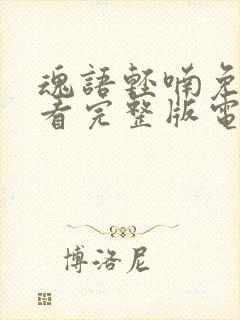 魂語輕喃免
看完整版電
博洛尼